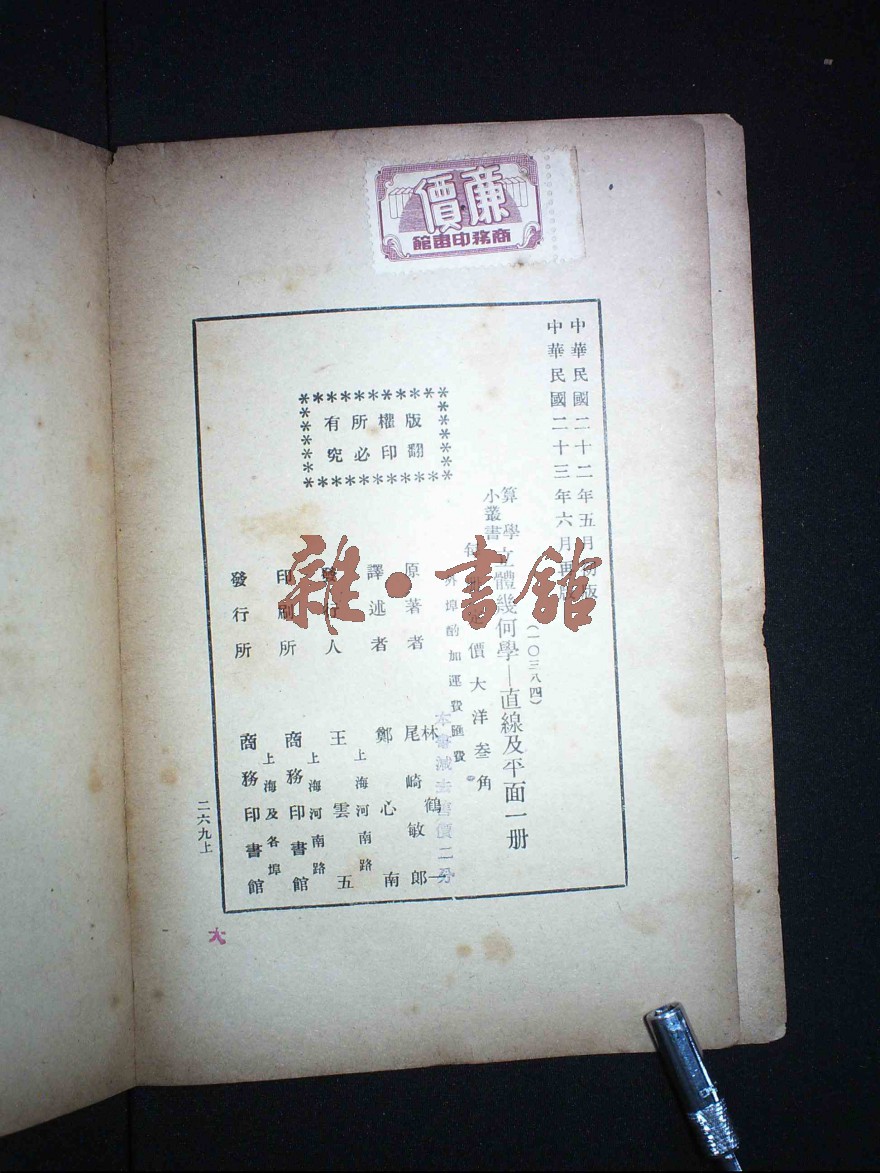 廉價
商務印書館
中華民國二十二年五月初版
中華民國二十三年六月再版
(一〇三八四)
算學小叢書 立體幾何學—直線及平面一册
價大洋叁角
外埠酌加運費匯費
本書減去書價二分
版權所有
翻印必究
原著者 林鶴一 尾崎敏郎
譯述者 鄭心南
發行人 王雲五
上海河南路
印刷所 商務印書館
上海河南路
發行所 商務印書館
上海及各埠
二六九上
雜·書館